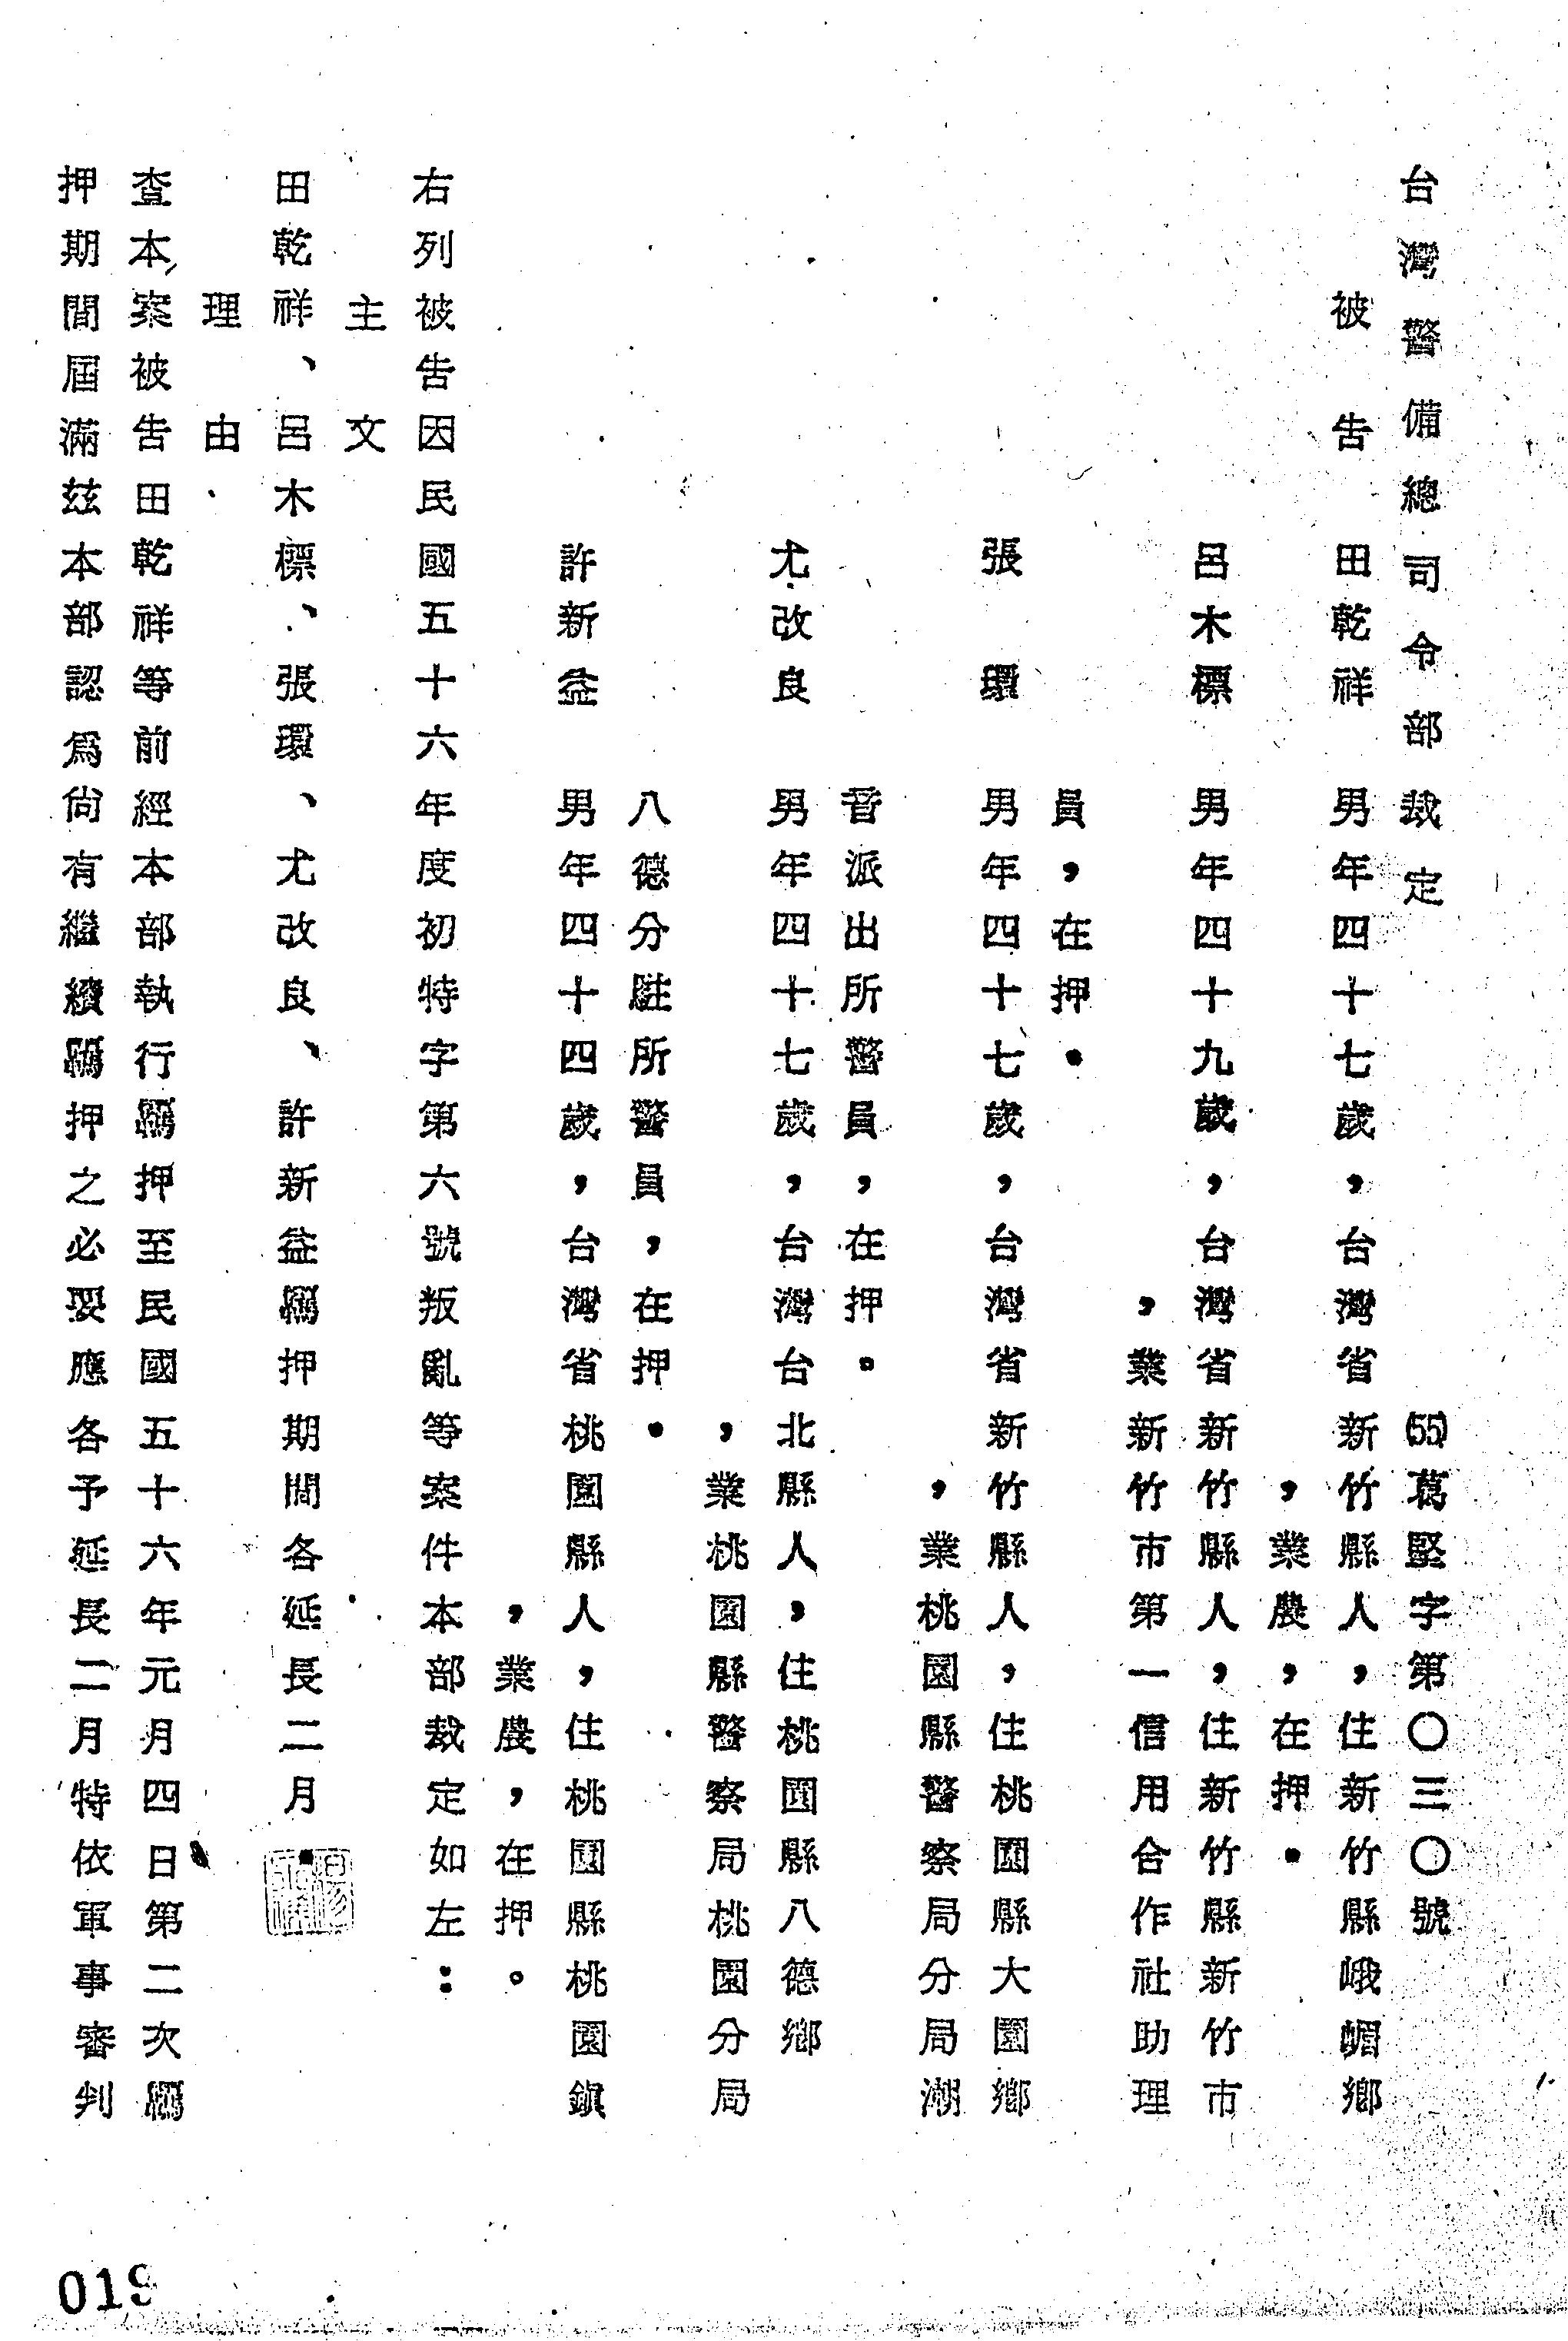 台灣警備總司令部裁定 (55)葛堅字第〇三〇號
被告 田乾祥 男年四十七歲，台灣省新竹縣人，住新竹縣峨嵋鄉
，業農，在押。
呂木標 男年四十九歲，台灣省新竹縣人，住新竹縣新竹市
，業新竹市第一信用合作社助理
員，在押。
張環 男年四十七歲，台灣省新竹縣人，住桃園縣大園鄉
，業桃園縣警察局分局潮
音派出所警員，在押。
尤改良 男年四十七歲，台灣台北縣人，住桃園縣八德鄉
，業桃園縣警察局桃園分局
八德分駐所警員，在押。
許新益 男年四十四歲，台灣省桃園縣人，住桃園縣桃園鎮
，業農，在押。
右列被告因民國五十六年度初特字第六號叛亂等案件本部裁定如左：
主文
田乾祥、呂木標、張環、尤改良、許新益羈押期間各延長二月
理由
查本案被告田乾祥等前經本部執行羈押至民國五十六年元月四日第二次羈
押期間屆滿茲本部認為尚有繼續羈押之必要應各予延長二月特依軍事審判
019